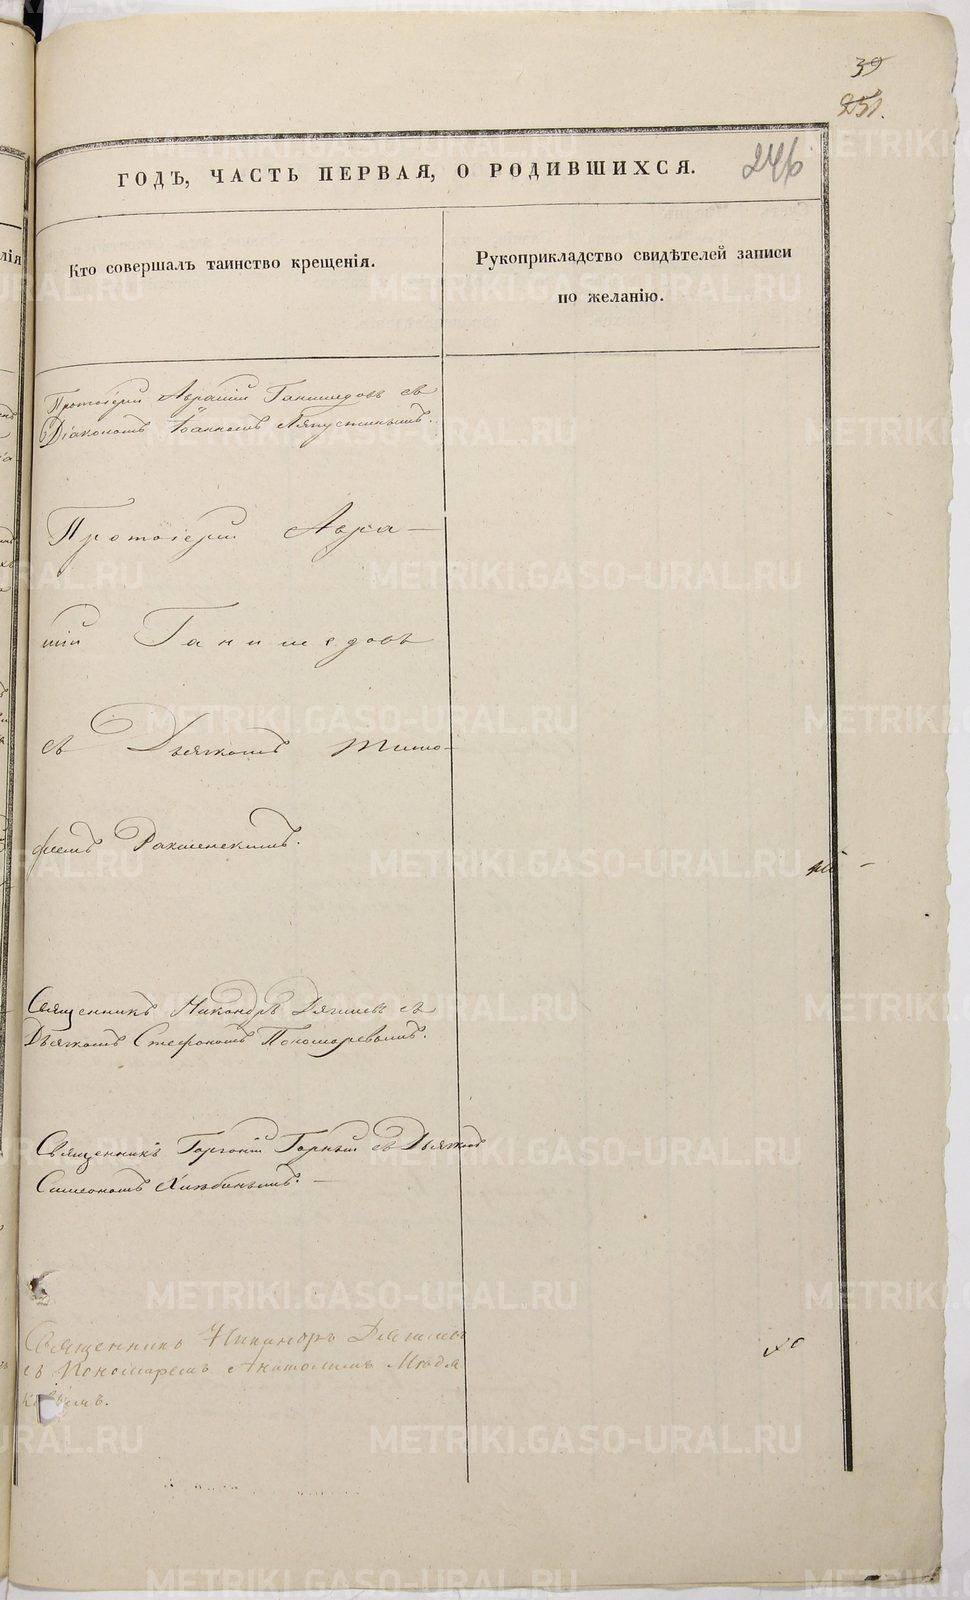 39
251.
246
ГОДЪ, ЧАСТЬ ПЕРВАЯ, О РОДИВШИХСЯ.
Кто совершалъ таинство крещенія.
Рукоприкладство свидѣтелей записи
по желанію.
Протоіерей Авраміи Ганимедовъ съ
Діакономъ Іоанномъ Ляпустинымъ.
Протоіерей Авра-
мій Ганимедовъ
съ Дьячкомъ Тимо-
феемъ
Священникъ Никандръ Дягилевъ съ
Дьячкомъ Стефаномъ Пономаревымъ.
Священникъ Горгоній Горный съ Дьячком
Симеономъ Хлюбинымъ.
Священникъ Никандръ Дягилевъ
съ Пономаремъ Анатоліемъ
METRIKI.GASO-URAL.RU